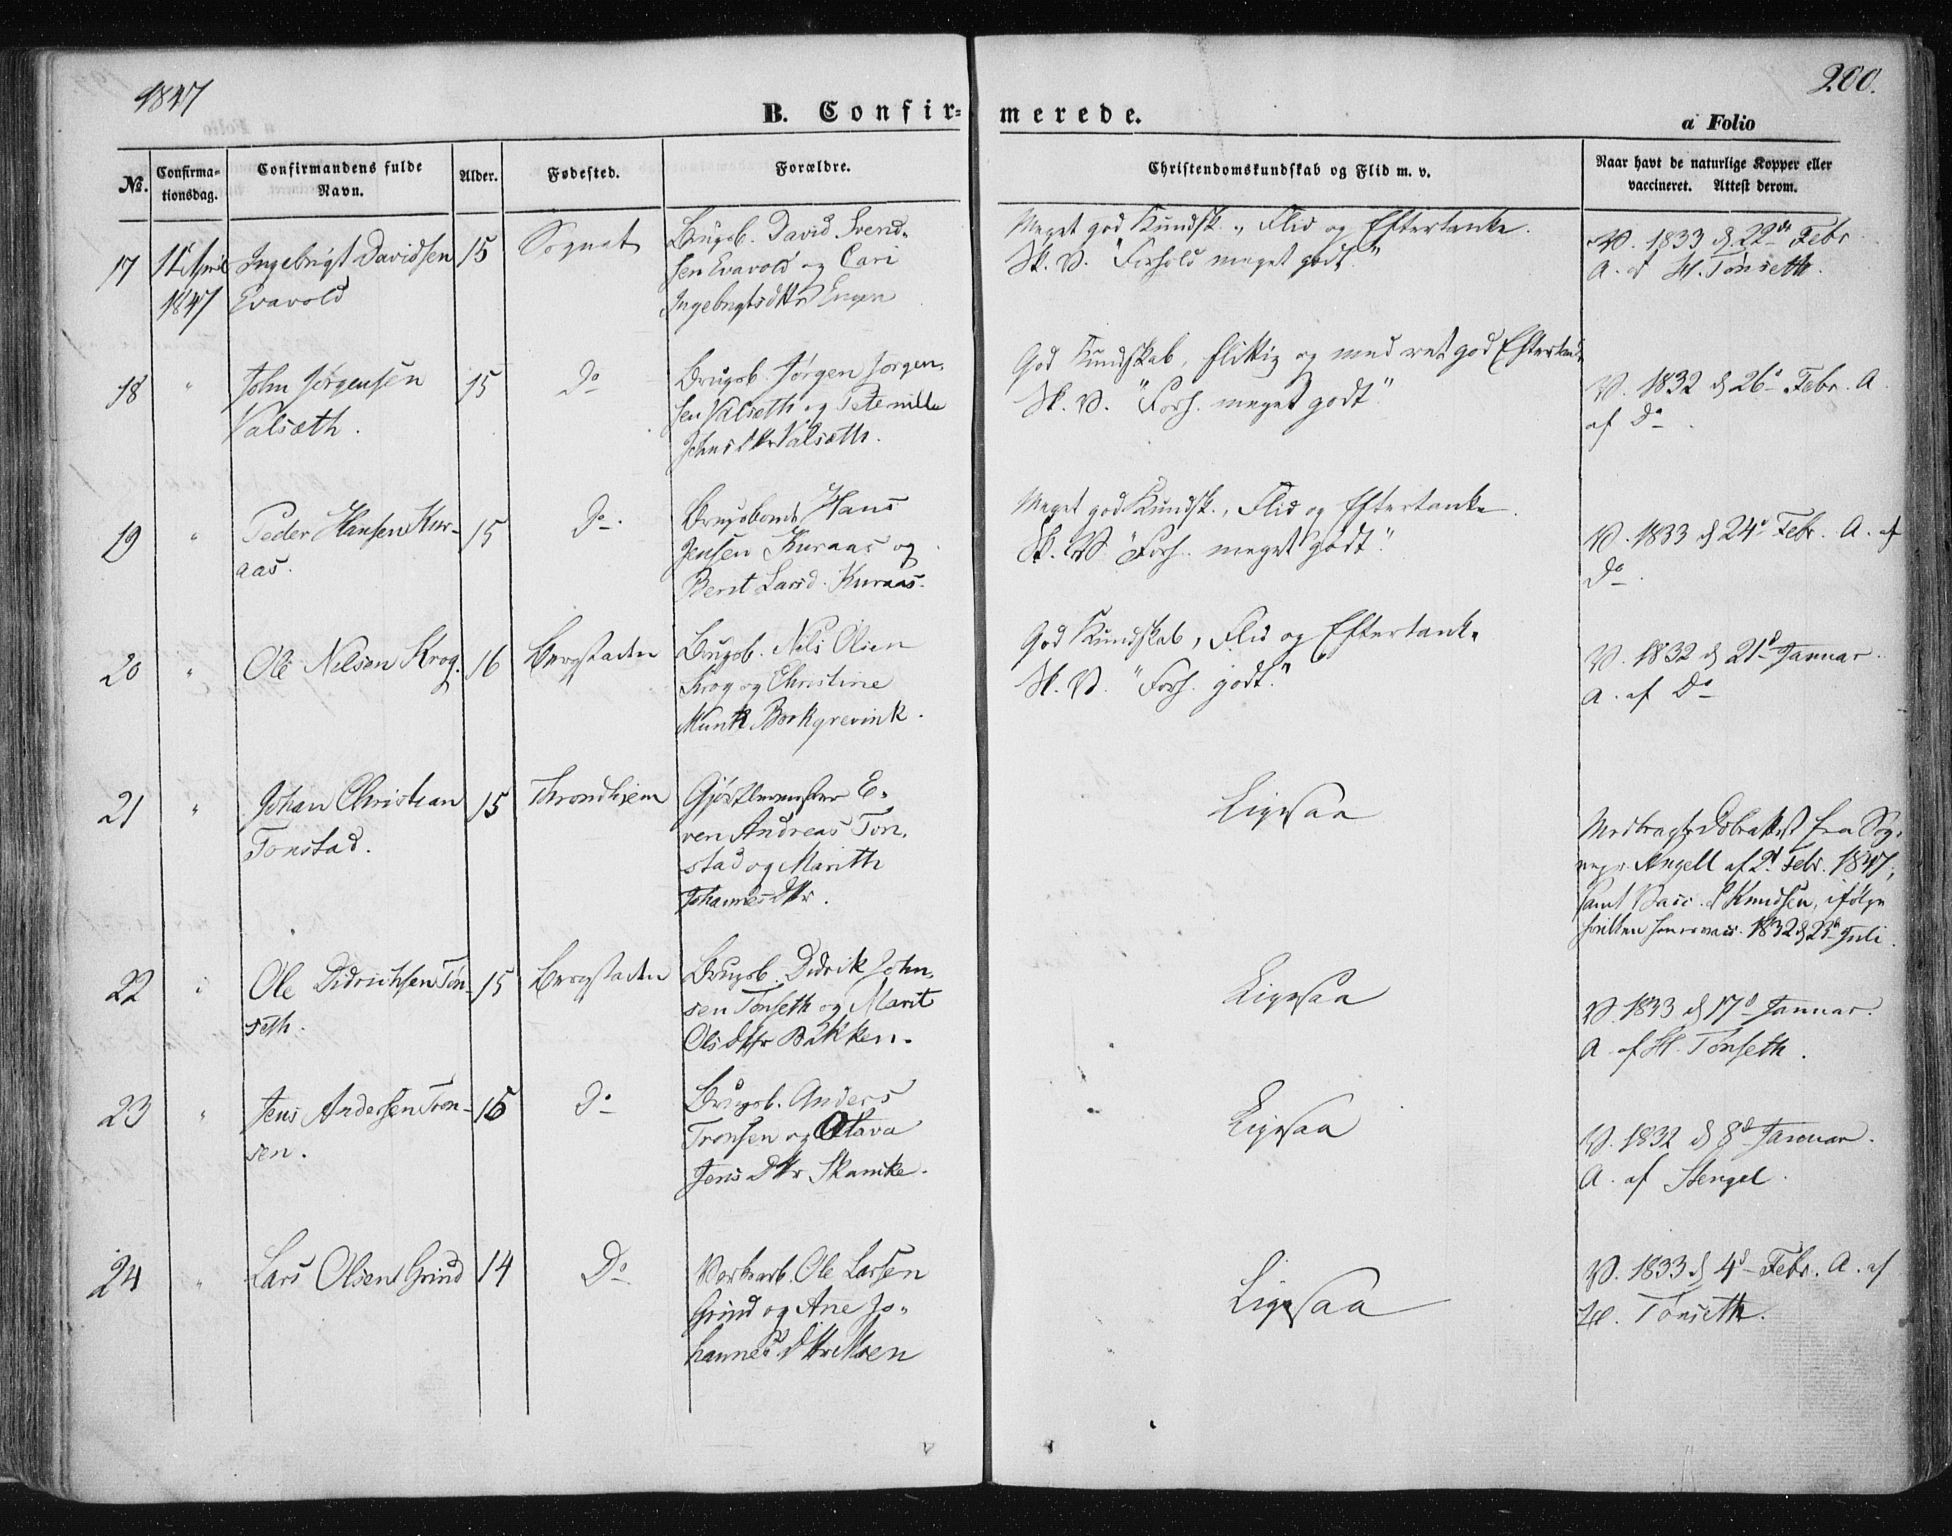 1847
200.
B. Confir-
merede.
a Folio
No.
Confirma-
tionsdag.
Confirmandens fulde
Navn.
Alder.
Fødested.
Forældre.
Christendomskundskab og Flid m. v.
Naar havt de naturlige Kopper eller
vaccineret. Attest derom.
17
April
1847
Ingebrigt Davidsen
Evavold
15
Sognet
Brugsb. David Svend-
sen Evavold og Cari
Ingebrigtsdttr Engen
Meget god Kundsk., Flid og Eftertanke.
Sk. V. "Forhold meget godt."
V. 1833 d 22de Febr
A. af H. Tønseth.
18
"
John Jørgensen
Valsæth.
15
Do
Brugsb. Jørgen Jørgen-
sen Valsæth og Peternille
Johnsdttr Valsæth.
God Kundskab, flittig og med ret god Eftertanke
Sk. V. "Forh. meget godt."
V. 1832 d 26de Febr. A.
af Do
19
"
Peder Hansen Kur-
aas.
15
Do
Brugsbonde Hans
Jensen Kuraas og
Berit Larsd. Kuraas.
Meget god Kundsk., Flid og Eftertanke.
Sk. V. "Forh. meget godt."
V. 1833 d 24de Febr. A. af
Do.
20
"
Ole Nilsen Krog.
16
Bergstaden
Brugsb. Nils Olsen
Krog og Christine
Munk Borkgrevink.
God Kundskab, Flid og Eftertanke
Sk. V. "Forh. godt."
V. 1832 d 21d Januar.
A. af Do
21
"
Johan Christian
Tonstad.
15
Throndhjem
Gjørtlermester E-
ven Andreas Ton-
stad og Marith
Johannesdttr.
Ligesaa
Medbragt Dobattest fra Sog-
nepr. Angell af 2d Febr. 1847,
samt Vacc. Knudsen, ifølge
hvilken han er vacc. 1832 d 23d Juli.
22
"
Ole Didrichsen Tøn-
seth.
15
Bergstaden
Brugsb. Didrik John-
sen Tønseth og Marit
Olsdttr Bakken.
Ligesaa
V. 1833 d 17d Januar.
A. af H. Tønseth.
23
"
Jens Andersen Tron-
sen.
15
Do
Brugsb. Anders
Tronsen og Olava
Jensdttr Skancke.
Ligesaa
V. 1832 d 8d Januar.
A. af Stengel.
24
"
Lars Olsen Grind
14
Do
Verksarb. Ole Larsen
Grind og Ane Jo-
hannesdttr Moen
Ligesaa
V. 1833 d 4d Febr. A. af
H. Tønseth.